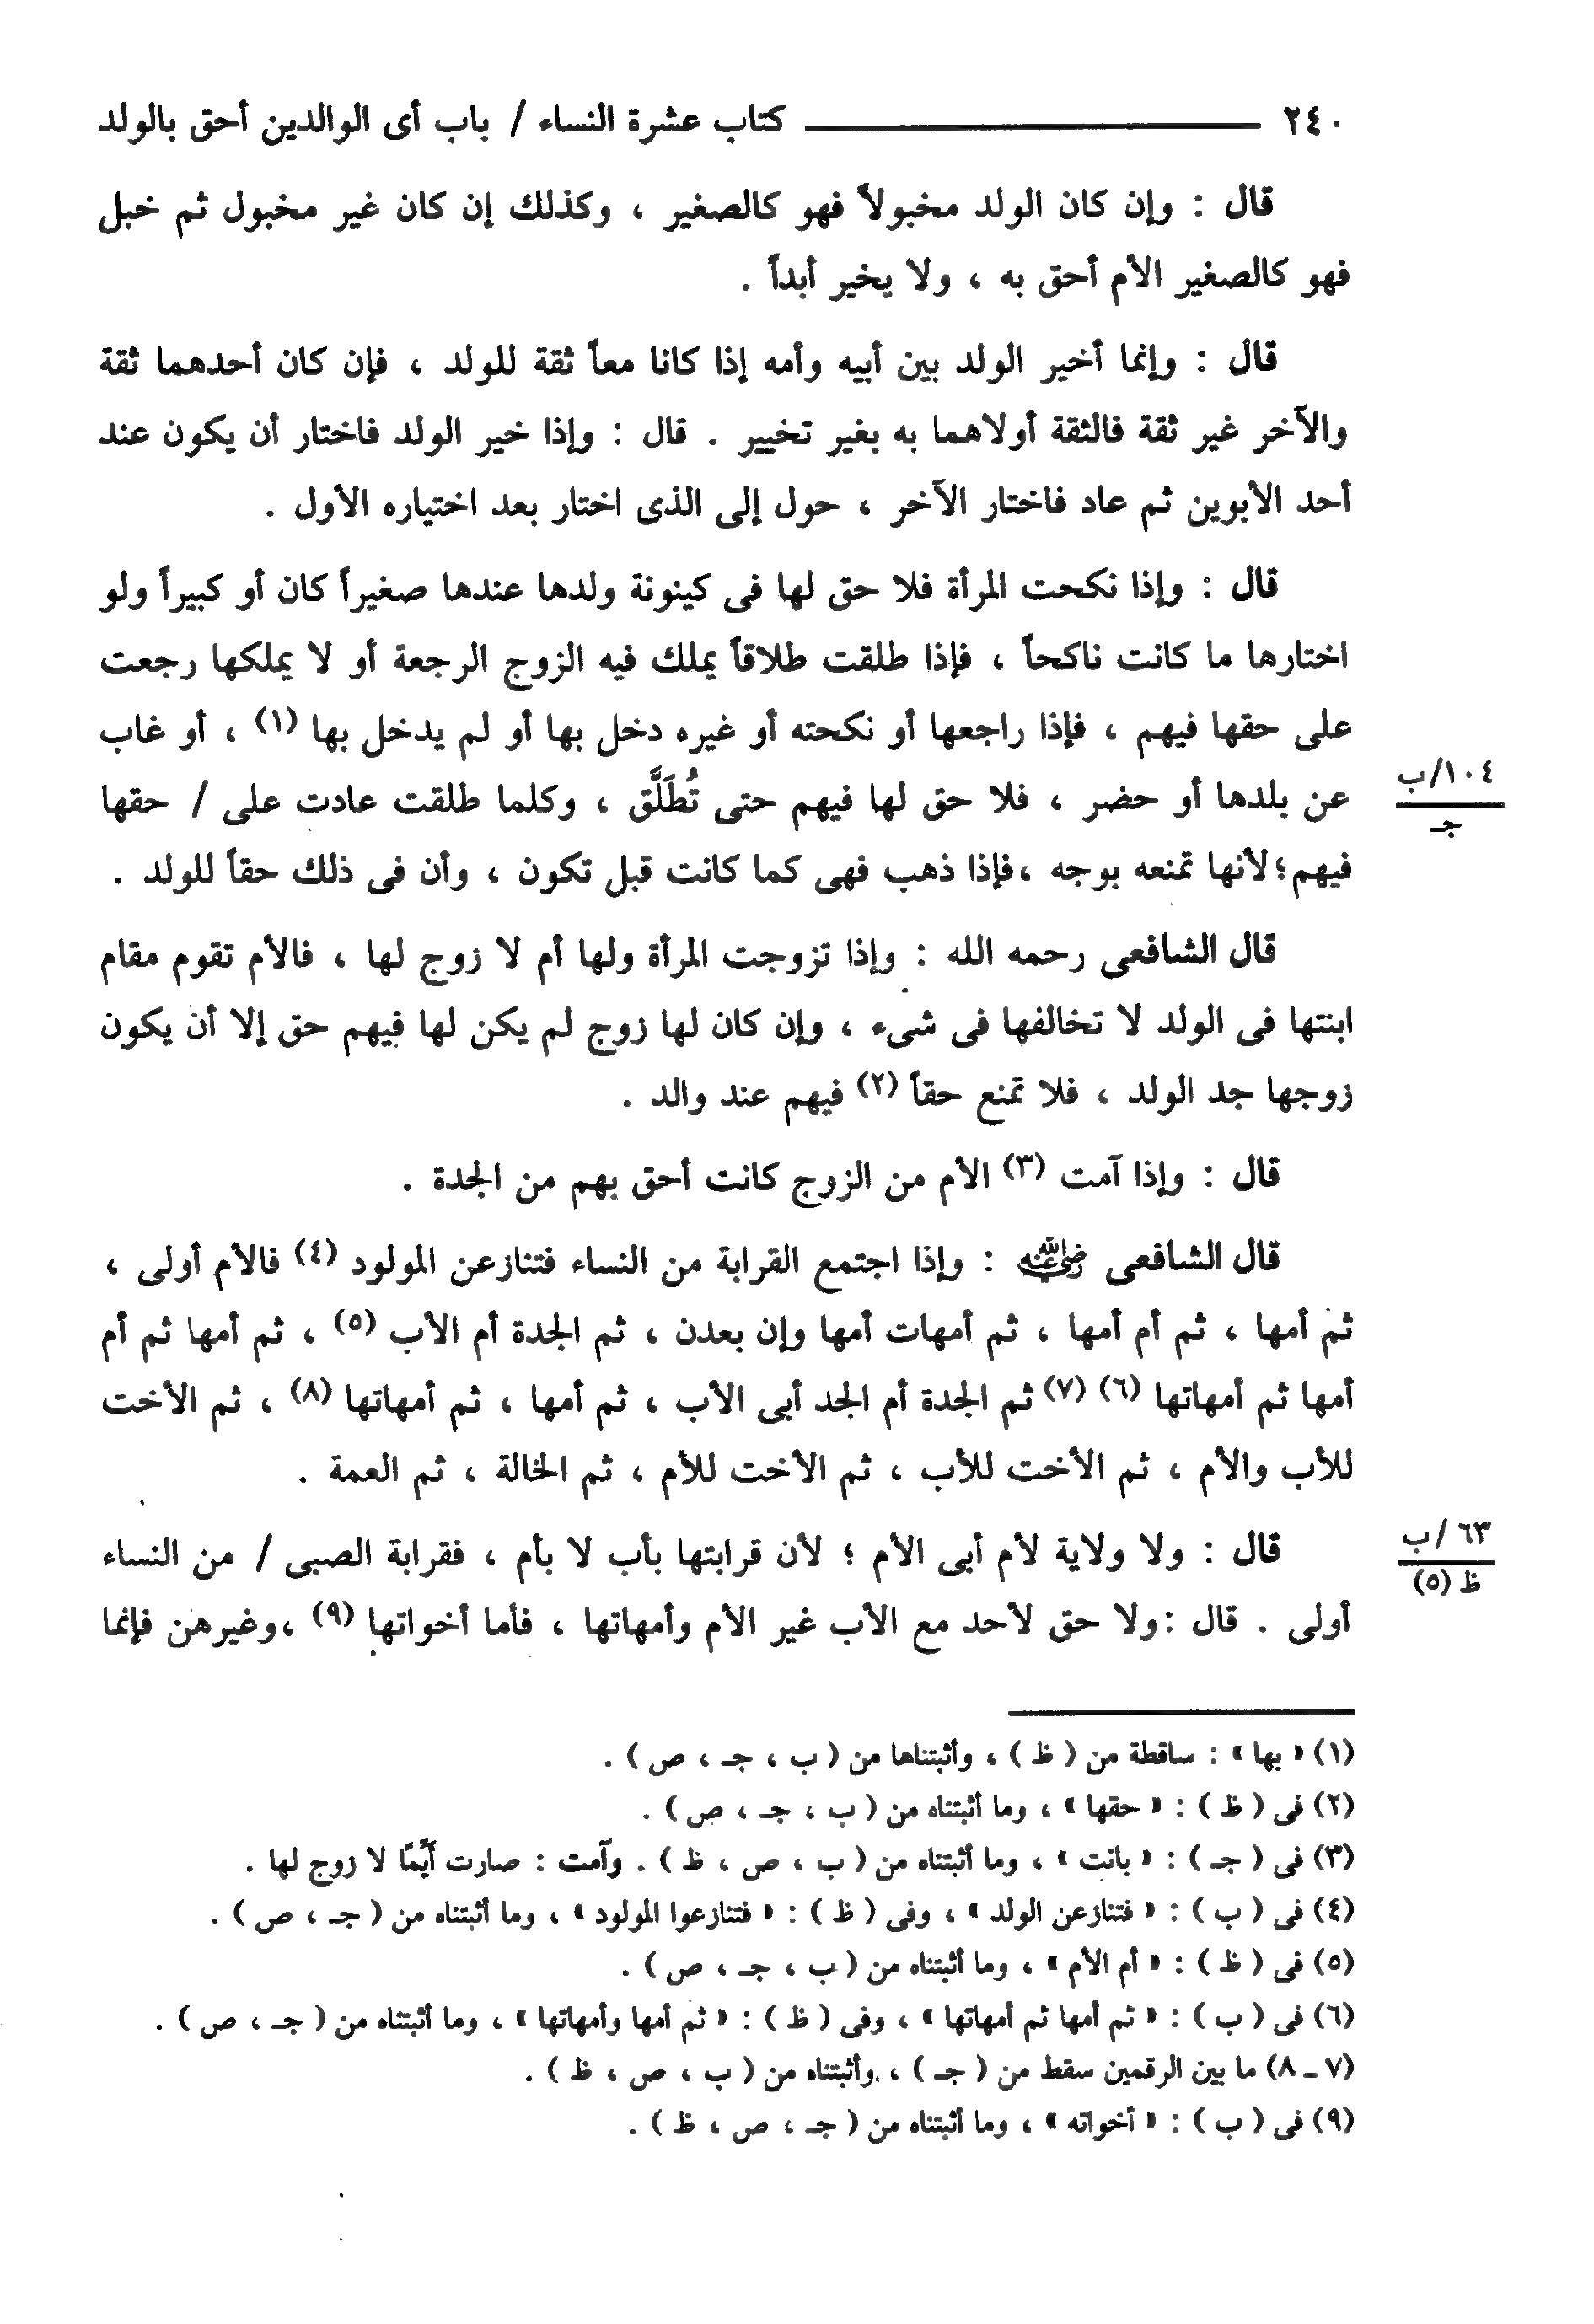 ٢٤٠ كتاب عشرة النساء / باب أى الوالدين أحق بالولد
قال : وإن كان الولد مخبولاً فهو كالصغير ، وكذلك إن كان غير مخبول ثم خبل
فهو كالصغير الأم أحق به ، ولا يخير أبداً .
قال : وإنما أخير الولد بين أبيه وأمه إذا كانا معاً ثقة للولد ، فإن كان أحدهما ثقة
والآخر غير ثقة فالثقة أولاهما به بغير تخيير . قال : وإذا خير الولد فاختار أن يكون عند
أحد الأبوين ثم عاد فاختار الآخر ، حول إلى الذى اختار بعد اختياره الأول .
قال : وإذا نكحت المرأة فلا حق لها فى كينونة ولدها عندها صغيراً كان أو كبيراً ولو
اختارها ما كانت ناكحاً ، فإذا طلقت طلاقاً يملك فيه الزوج الرجعة أو لا يملكها رجعت
على حقها فيهم ، فإذا راجعها أو نكحته أو غيره دخل بها أو لم يدخل بها (١) ، أو غاب
عن بلدها أو حضر ، فلا حق لها فيهم حتى تُطَلَّق ، وكلما طلقت عادت على / حقها
١٠٤/ب
جـ
فيهم؛لأنها تمنعه بوجه ،فإذا ذهب فهى كما كانت قبل تكون ، وأن فى ذلك حقاً للولد .
قال الشافعى رحمه الله : وإذا تزوجت المرأة ولها أم لا زوج لها ، فالأم تقوم مقام
ابنتها فى الولد لا تخالفها فى شىء ، وإن كان لها زوج لم يكن لها فيهم حق إلا أن يكون
زوجها جد الولد ، فلا تمنع حقاً (٢) فيهم عند والد .
قال : وإذا آمت (٣) الأم من الزوج كانت أحق بهم من الجدة .
قال الشافعى رضي الله عنه : وإذا اجتمع القرابة من النساء فتنازعن المولود (٤) فالأم أولى ،
ثم أمها ، ثم أم أمها ، ثم أمهات أمها وإن بعدن ، ثم الجدة أم الأب (٥) ، ثم أمها ثم أم
أمها ثم أمهاتها (٦) (٧) ثم الجدة أم الجد أبى الأب ، ثم أمها ، ثم أمهاتها (٨) ، ثم الأخت
للأب والأم ، ثم الأخت للأب ، ثم الأخت للأم ، ثم الخالة ، ثم العمة .
قال : ولا ولاية لأم أبى الأم ؛ لأن قرابتها بأب لا بأم ، فقرابة الصبى / من النساء
٦٣ /ب
ظ (٥)
أولى . قال :ولا حق لأحد مع الأب غير الأم وأمهاتها ، فأما أخواتها (٩) ،وغيرهن فإنما
(١) « بها » : ساقطة من ( ظ ) ، وأثبتناها من ( ب ، جـ ، ص ) .
(٢) فى ( ظ ) : « حقها » ، وما أثبتناه من ( ب ، جـ ، ص ) .
(٣) فى ( جـ ) : « بانت » ، وما أثبتناه من ( ب ، ص ، ظ ) . وآمت : صارت أيِّمًا لا زوج لها .
(٤) فى ( ب ) : « فتنازعن الولد » ، وفى ( ظ ) : « فتنازعوا المولود » ، وما أثبتناه من ( جـ ، ص ) .
(٥) فى ( ظ ) : « أم الأم » ، وما أثبتناه من ( ب ، جـ ، ص ) .
(٦) فى ( ب ) : « ثم أمها ثم أمهاتها » ، وفى ( ظ ) : « ثم أمها وأمهاتها » ، وما أثبتناه من ( جـ ، ص ) .
(٧ ـ ٨) ما بين الرقمين سقط من ( جـ ) ، وأثبتناه من ( ب ، ص ، ظ ) .
(٩) فى ( ب ) : « أخواته » ، وما أثبتناه من ( جـ ، ص ، ظ ) .